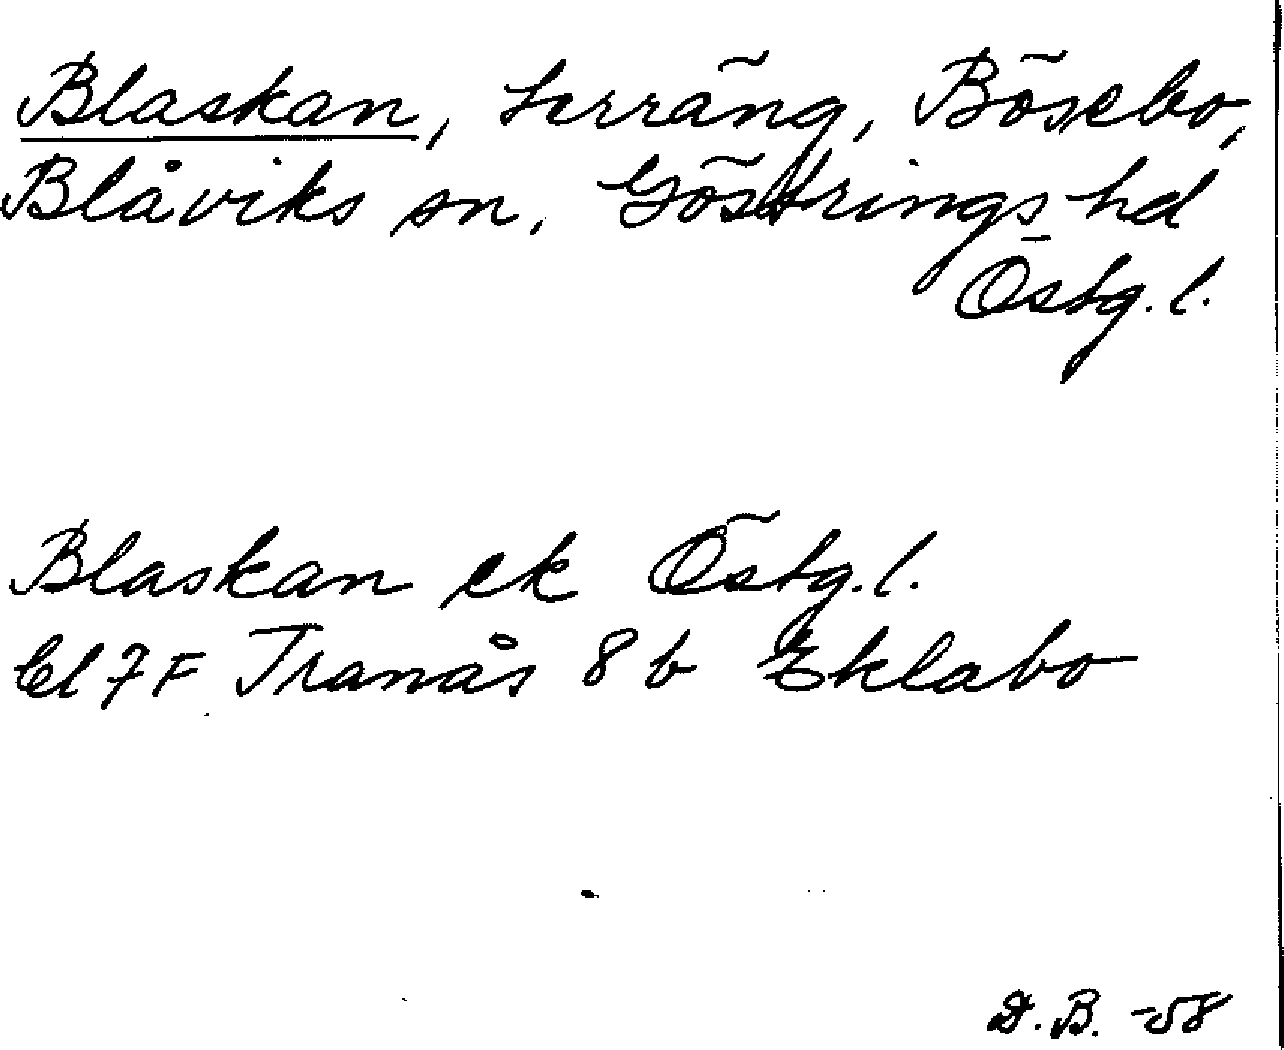 Blaskan, terräng, Bösebo,
Blåviks sn, Göstrings hd
Östg. l.
Blaskan ek Östg. l.
7F Tranås 8 b Eklabo
D. B. -58